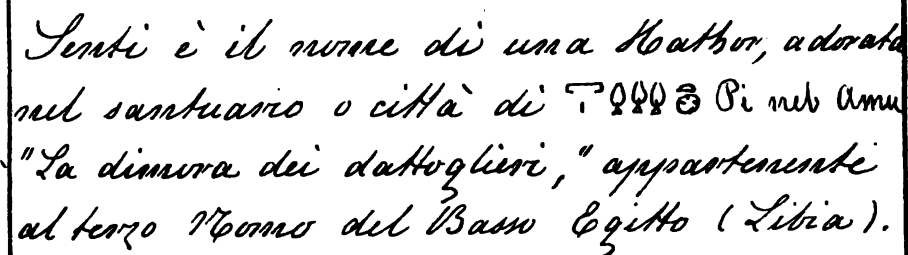 Senti è il nome di una Hathor, adorata
nel santuario o città di Pi neb Amu
"La dimora dei dattoglieri," appartenente
al terzo Nomo del Basso Egitto (Libia).